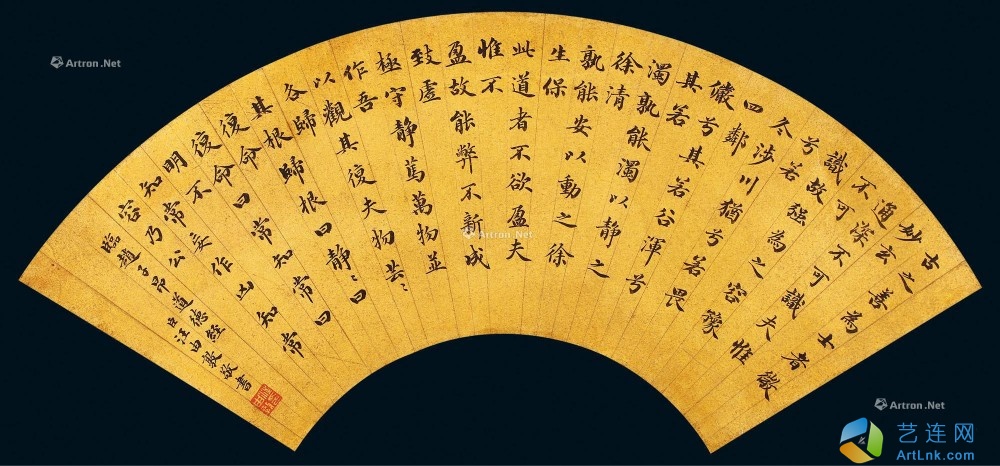 古之善為士者微
妙玄
通深不可識夫惟
不可
識故強為之容豫
兮若
冬涉川猶兮若畏
四鄰
儼兮其若谷渾兮
其若
濁孰能濁以靜之
徐清
孰能安以動之徐
生保
此道者不欲盈夫
惟不
盈故能弊不新成
致虛
極守靜篤萬物並
作吾
以觀其復夫物芸〻
各歸
其根歸根曰靜〻曰
復命
復命曰常知常曰
明不
知常妄作凶知常
容乃公
臨趙子昂道德經
臣汪由敦敬書
Artron.Net
Artron.Net
Artron.Net
艺连网
ArtLnk.com